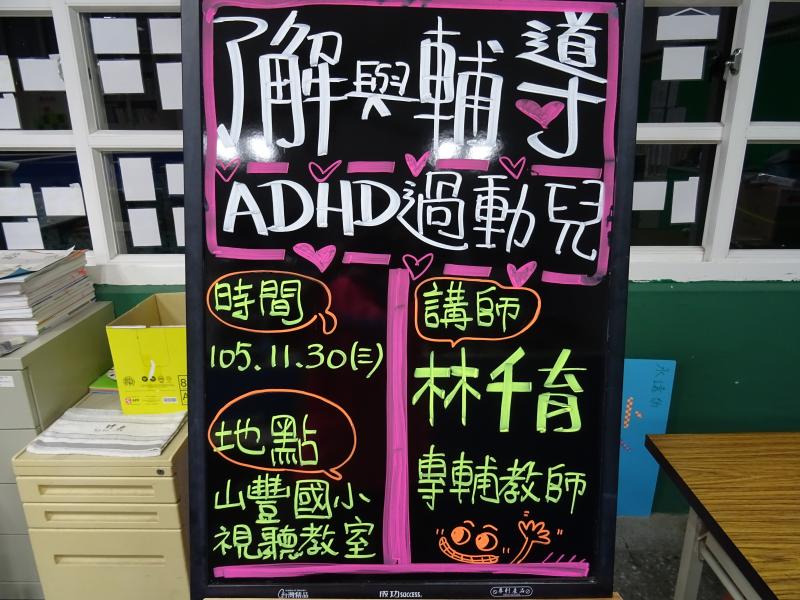 了解與輔導
ADHD過動兒
時間
105.11.30(三)
地點
山豐國小
視聽教室
講師
林千育
專輔教師
成功 success.